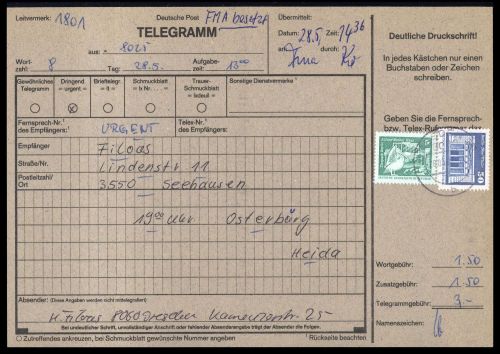 Leitvermerk: 1801
Deutsche Post FMA besetzt
TELEGRAMM
Übermittelt:
Datum: 28.5. Zeit: 1436
aus: 8025
an: durch:
Wort-
zahl: 8 Tag: 28.5. Aufgabe-
zeit: 1300
Deutliche Druckschrift!
In jedes Kästchen nur einen
Buchstaben oder Zeichen
schreiben.
Gewöhnliches
Telegramm
Dringend
= urgent =
Brieftelegr.
= lt =
Schmuckblatt
= lx Nr. … =
Trauer-
Schmuckblatt
= lxdeuil =
Sonstige Dienstvermerke
Fernsprech-Nr.
des Empfängers:
URGENT
Telex-Nr.
des Empfängers:
Geben Sie die Fernsprech-
bzw. Telex-Rufnummer
Empfänger
Filoas
Straße/Nr.
Lindenstr 11
Postleitzahl/
Ort
3550 Seehausen
1900 Uhr Osterburg
Heida
50
Wortgebühr: 1.50
Zusatzgebühr: 1.50
Telegrammgebühr: 3.-
Namenszeichen:
Absender: (Diese Angaben werden nicht mittelegrafiert)
H. Filoas 8060 Dresden Kamenzerstr. 25
Bei undeutlicher Schrift, unvollständiger Anschrift oder fehlender Absenderangabe trägt der Absender die Folgen.
Zutreffendes ankreuzen, bei Schmuckblatt gewünschte Nummer angeben
Rückseite beachten